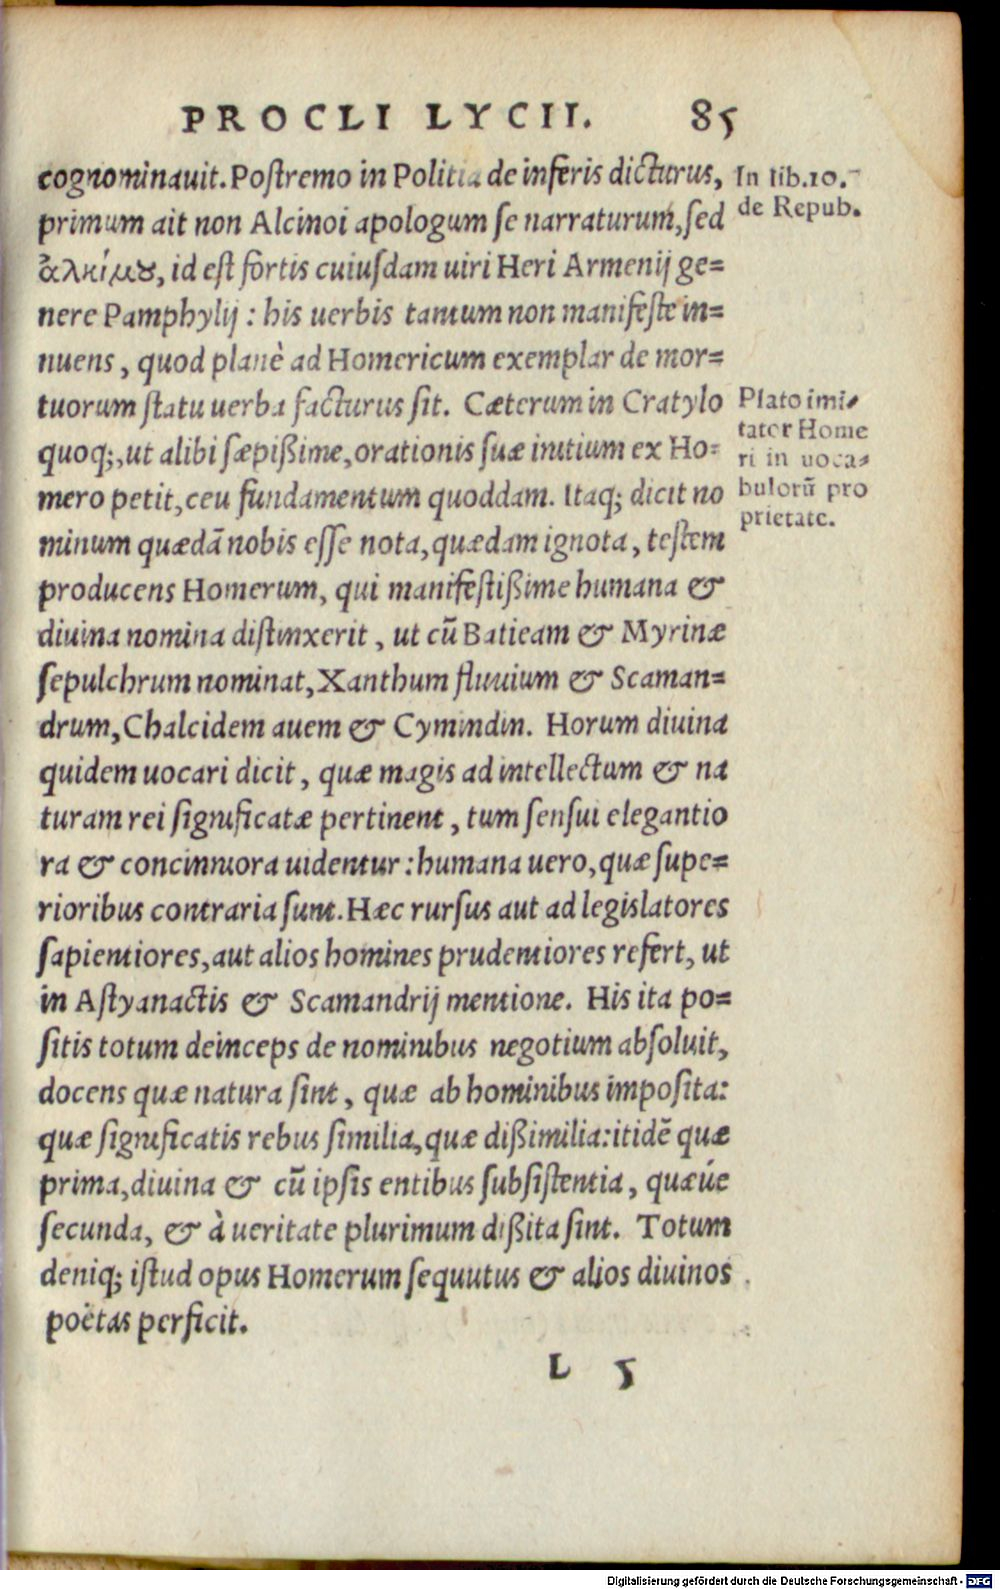 PROCLI LYCII. 85
cognominauit. Postremo in Politia de inferis dicturus,
primum ait non Alcinoi apologum se narraturum, sed
ἀλκίμȣ, id est fortis cuiusdam uiri Heri Armenij ge=
nere Pamphylij : his uerbis tantum non manifeste in=
nuens, quod planè ad Homericum exemplar de mor=
tuorum statu uerba facturus sit. Cæterum in Cratylo
quoq;, ut alibi sæpißime, orationis suæ initium ex Ho=
mero petit, ceu fundamentum quoddam. Itaq; dicit no
minum quædã nobis esse nota, quædam ignota, testem
producens Homerum, qui manifestißime humana &
diuina nomina distinxerit, ut cũ Batieam & Myrinæ
sepulchrum nominat, Xanthum fluuium & Scaman=
drum, Chalcidem auem & Cymindin. Horum diuina
quidem uocari dicit, quæ magis ad intellectum & na
turam rei significatæ pertinent, tum sensui elegantio
ra & concinniora uidentur : humana uero, quæ supe=
rioribus contraria sunt. Hæc rursus aut ad legislatores
sapientiores, aut alios homines prudentiores refert, ut
in Astyanactis & Scamandrij mentione. His ita po=
sitis totum deinceps de nominibus negotium absoluit,
docens quæ natura sint, quæ ab hominibus imposita:
quæ significatis rebus similia, quæ dißimilia: itidẽ quæ
prima, diuina & cũ ipsis entibus subsistentia, quæúe
secunda, & à ueritate plurimum dißita sint. Totum
deniq; istud opus Homerum sequutus & alios diuinos
poëtas perficit.
L 5
In lib.10.
de Repub.
Plato imi=
tator Home
ri in uoca=
bulorũ pro
prietate.
Digitalisierung gefördert durch die Deutsche Forschungsgemeinschaft - DFG